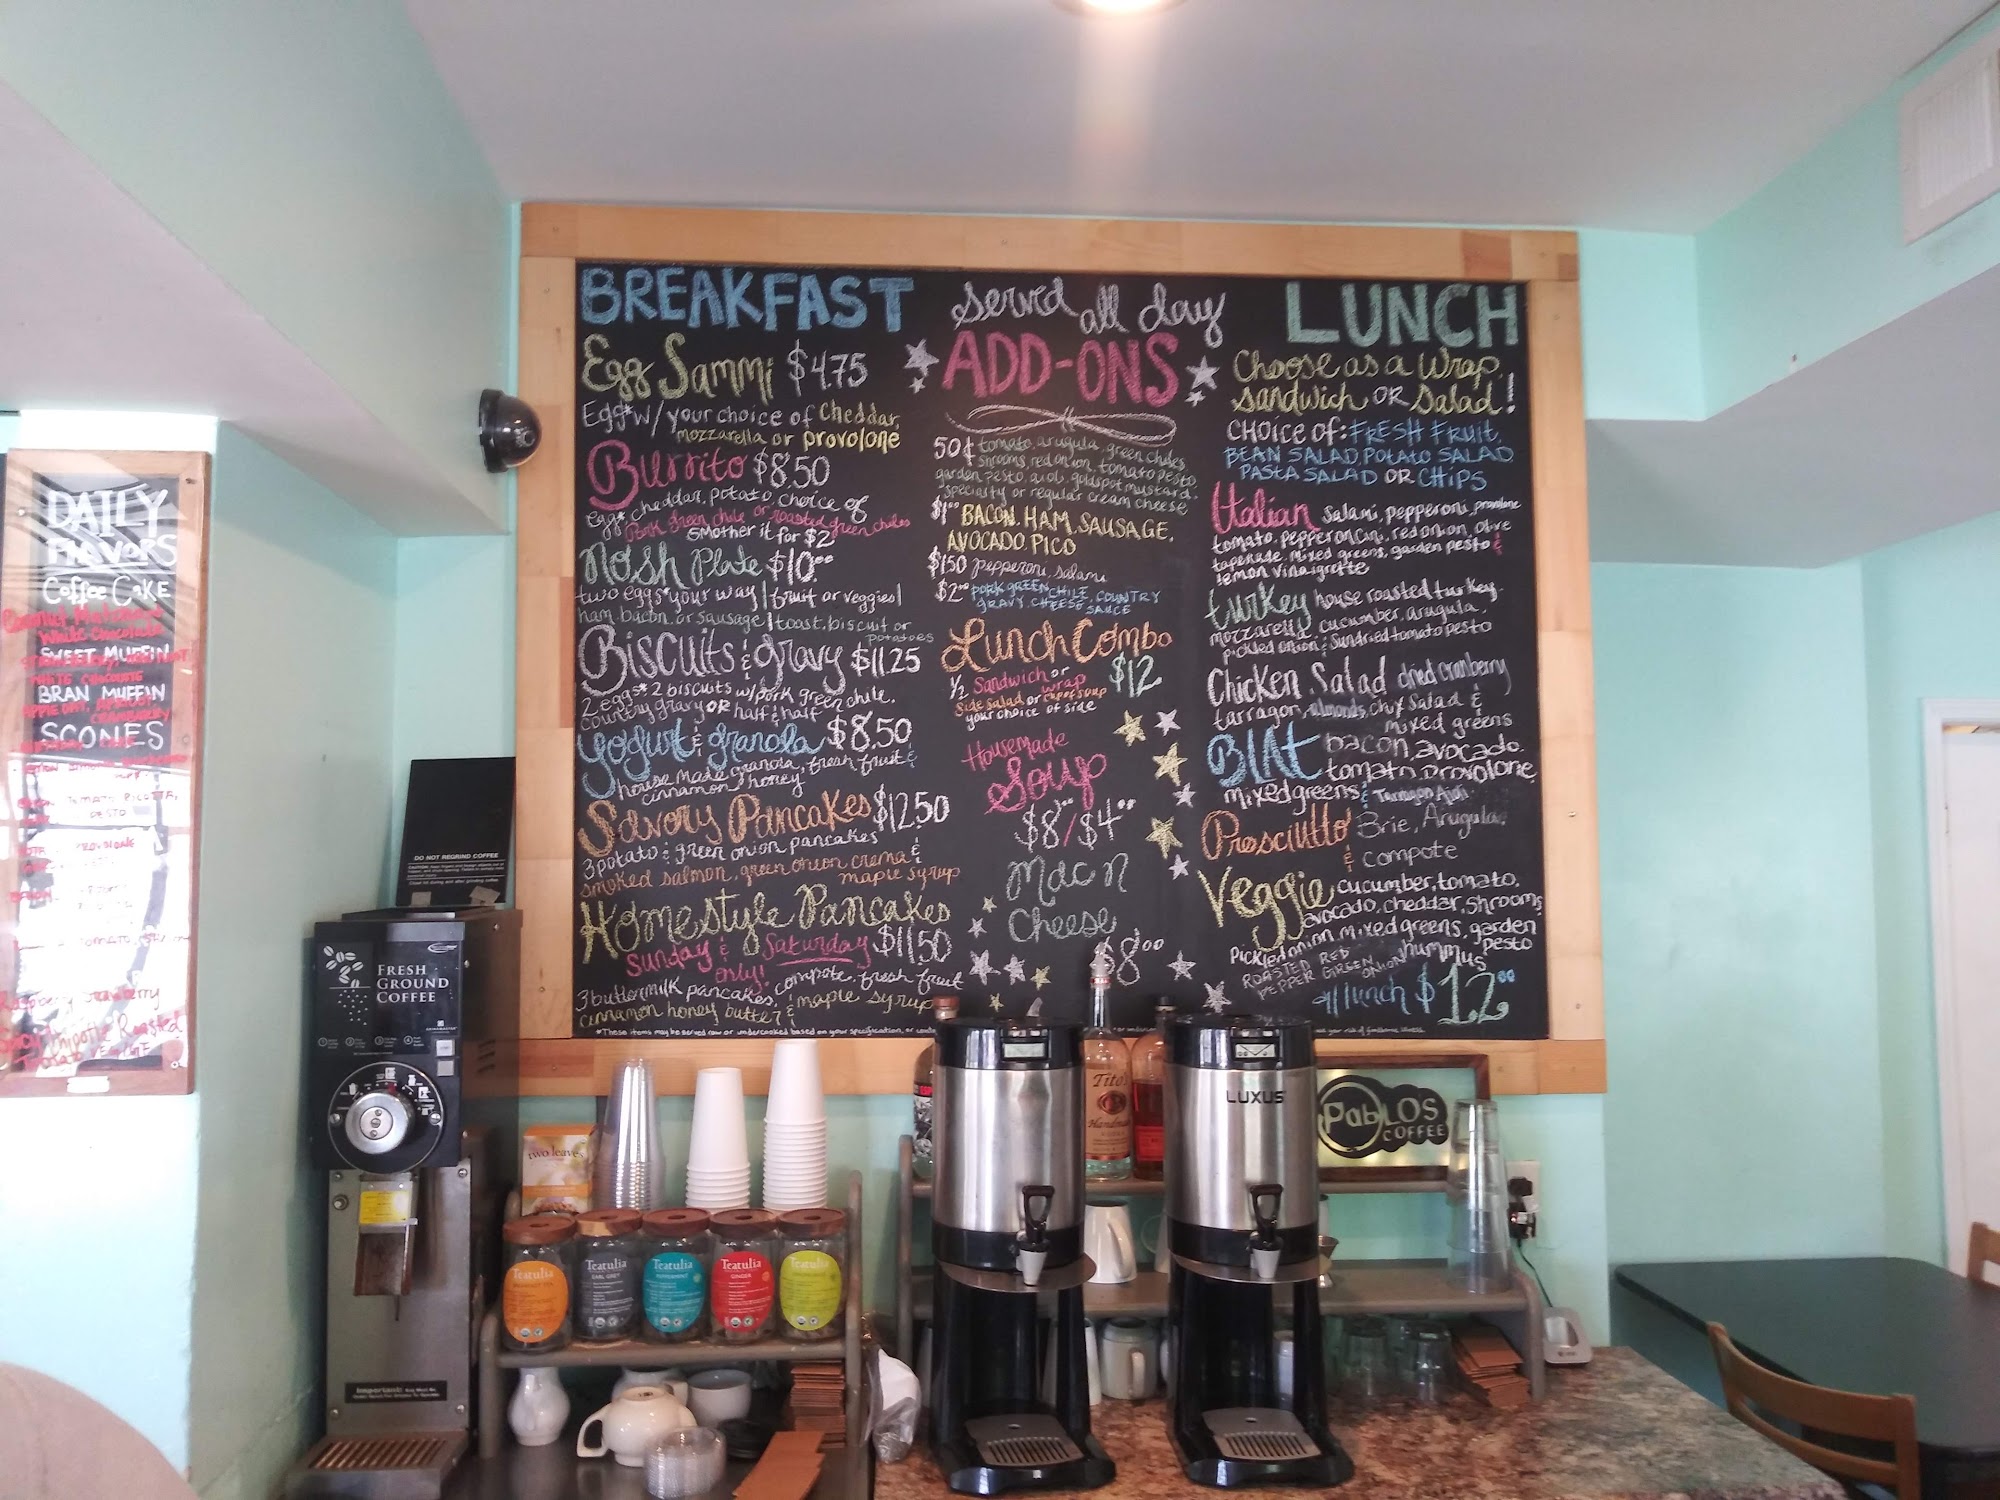 BREAKFAST
Egg Sammi $4.75
Egg* w/ your choice of cheddar,
mozzarella or provolone
Burrito $8.50
egg*, cheddar, potato, choice of
pork green chile or roasted green chiles
smother it for $2
Nosh Plate $10.00
two eggs* your way | fruit or veggies |
ham, bacon, or sausage | toast, biscuit or
potatoes
Biscuits & gravy $11.25
2 eggs* 2 biscuits w/ pork green chile,
country gravy OR half & half
Yogurt & granola $8.50
house made granola, fresh fruit &
cinnamon honey
Savory Pancakes $12.50
3 potato & green onion pancakes
smoked salmon, green onion crema &
maple syrup
Homestyle Pancakes
Sunday & Saturday $11.50
only!
3 buttermilk pancakes, compote, fresh fruit
cinnamon honey butter & maple syrup
*These items may be served raw or undercooked based on your specification, or
served all day
ADD-ONS
50¢ tomato, arugula, green chiles
shrooms, red onion, tomato pesto,
garden pesto, aioli, goldspot mustard,
specialty or regular cream cheese
$1.00 BACON, HAM, SAUSAGE,
AVOCADO, PICO
$1.50 pepperoni, salami
$2.00 PORK GREEN CHILE, COUNTRY
GRAVY, CHEESE SAUCE
Lunch Combo
$12
1/2 Sandwich or
wrap
Side Salad or cup of soup
your choice of side
Housemade
Soup
$8.00/$4.00
Mac N
Cheese
$8.00
LUNCH
Choose as a Wrap,
sandwich OR Salad!
CHOICE OF: FRESH FRUIT,
BEAN SALAD, POTATO SALAD
PASTA SALAD OR CHIPS
Italian salami, pepperoni, provolone
tomato, pepperoncini, red onion, olive
tapenade, mixed greens, garden pesto &
lemon vinaigrette
turkey house roasted turkey,
mozzarella, cucumber, arugula,
pickled onion & sundried tomato pesto
Chicken Salad dried cranberry
tarragon, almonds, chx salad &
mixed greens
BLAT bacon, avocado,
tomato, provolone,
mixed greens & Tarragon Aioli
Prosciutto Brie, Arugula,
& compote
Veggie cucumber, tomato,
avocado, cheddar, shrooms,
pickled onion, mixed greens, garden
pesto
hummus
ROASTED RED
PEPPER GREEN ONION
all lunch $12.00
your risk of foodborne illness.
DAILY
FLAVORS
COFFEE CAKE
White Chocolate
SWEET MUFFIN
WHITE CHOCOLATE
BRAN MUFFIN
APPLE OAT, APRICOT,
CRANBERRY
SCONES
TOMATO RICOTTA,
PESTO
PROVOLONE
TOMATO
Raspberry
Spicy Chipotle Roasted
DO NOT REGRIND COFFEE
FRESH
GROUND
COFFEE
Important:
two leaves
Teatulia
Teatulia
EARL GREY
Teatulia
PEPPERMINT
Teatulia
GINGER
Teatulia
Tito's
Handmade
LUXUS
PabLOS
COFFEE